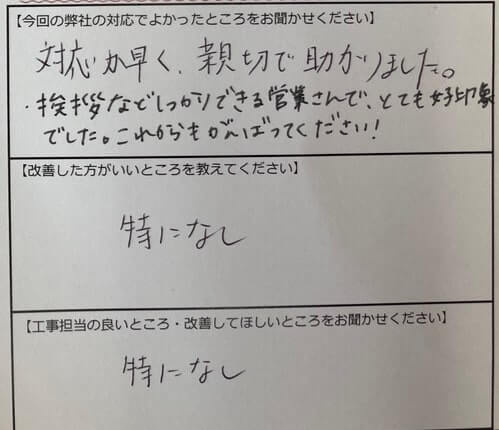 【今回の弊社の対応でよかったところをお聞かせください】
対応が早く、親切で助かりました。
・挨拶などしっかりできる営業さんで、とても好印象
でした。これからもがんばってください!
【改善した方がいいところを教えてください】
特になし
【工事担当の良いところ・改善してほしいところをお聞かせください】
特になし